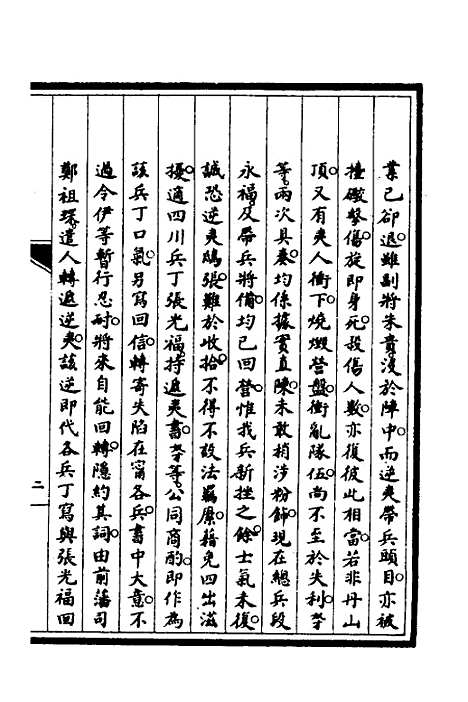 業已卻退。雖副將朱貴。沒於陣中。而逆夷帶兵頭目。亦被
擡礮擊傷。旋即身死。殺傷人數。亦復彼此相當。若非丹山
頂。又有夷人衝下。燒燬營盤。衝亂隊伍。尚不至於失利。等
等。兩次具奏。均係據實直陳。未敢稍涉粉飾。現在總兵段
永福。及帶兵將備。均已回營。惟我兵新挫之餘。士氣未復。
誠恐逆夷鴟張。難於收拾。不得不設法羈縻。藉免四出滋
擾。適四川兵丁張光福。持遞夷書。等等。公同商酌。即作為
該兵丁口氣。另寫回信。轉寄失陷在甯各兵。書中大意。不
過令伊等暫行忍耐。將來自能回轉。隱約其詞。由前藩司
鄭祖琛。遣人轉遞逆夷。該逆即代各兵丁寫與張光福回
二